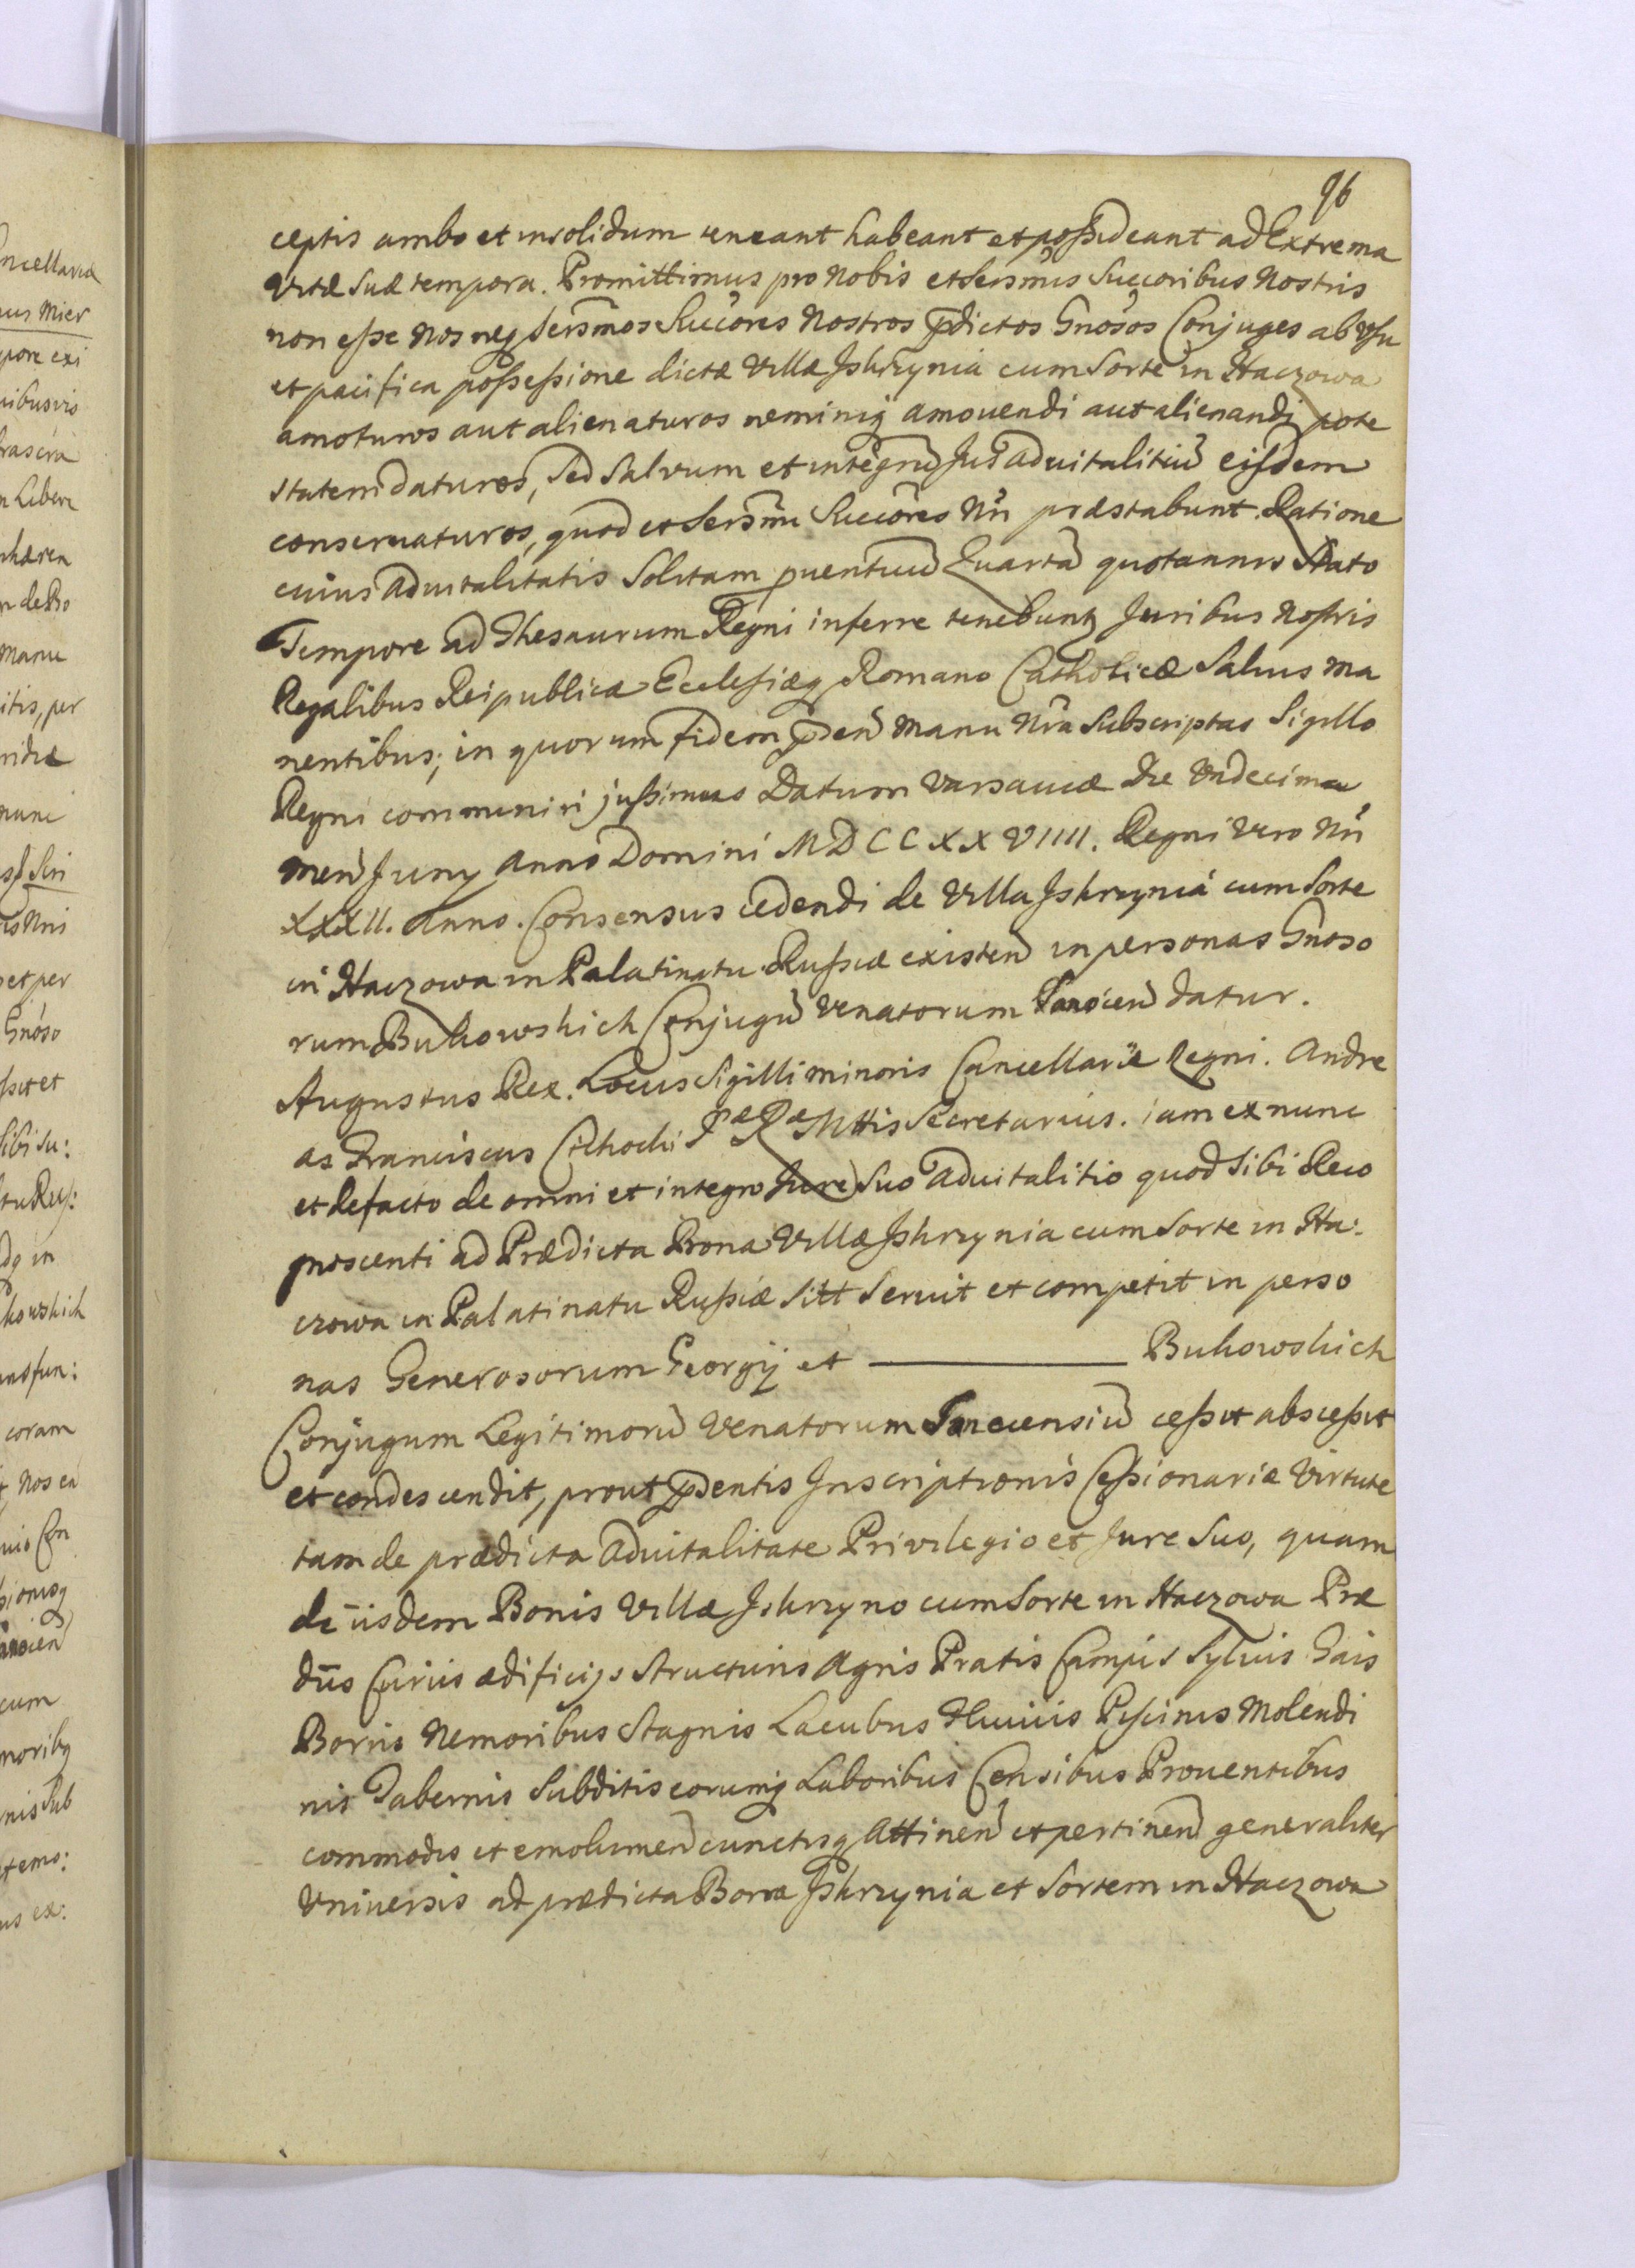 96
ceptis ambo et insolidum teneant habeant et possideant ad Extrema
Vitæ Suæ tempora. Promittimus pro Nobis et Sersmis Succoribus Nostris
non esse Nos neq Sersmos Succores Nostros pdictos Gnosos Conjuges ab Usu
et pacifica possessione dictæ Villæ Iskrzynia cum Sorte in Haczowa
amoturos aut alienaturos neminiq amovendi aut alienandi pote
statem daturos, Sed Salvum et integru Jus Advitalitiu eisdem
conservaturos, quod et Sersmi Succores Nri præstabunt. Ratione
cuius Advitalitatis Solitam pventuu Quarta quotannis Stato
Tempore ad Thesaurum Regni inferre tenebunt Juribus Nostris
Regalibus Reipublicæ Ecclesiæq Romano Catholicæ Salvis ma
nentibus; in quorum fidem pden Manu Nra Subscriptas Sigillo
Regni communiri jussimus Datum Varsaviæ Die Undecima
men Juny Anno Domini MDCCXXVIIII. Regni Vero Nri
XXXII. Anno. Consensus cedendi de Villa Iskrzynia cum Sorte
in Haczowa in Palatinatu Russiæ existen in personas Gnoso
rum Bukowskich Conjugu Venatorum Sanocien datur.
Augustus Rex. Locus Sigilli minoris Cancellariæ Regni. Andre
as Franciscus Cichocki Sæ Ræ Mttis Secretarius. iam ex nunc
et defacto de omni et integro Jure Suo Advitalitio quod Sibi Reco
gnoscenti ad Prædicta Bona Villæ Iskrzynia cum Sorte in Ha:
czowa in Palatinatu Russiæ Sitt Servit et competit in perso
nas Generosorum Georgij et ——— Bukowskich
Conjugum Legitimoru Venatorum Sanocensiu cessit abscessit
et condescendit, prout pdentis Inscriptionis Cessionariæ Virtute
tam de prædicta Advitalitate Privilegio et Jure Suo, quam
de iisdem Bonis Villæ Iskrzyno cum Sorte in Haczowa Præ
diis Curiis ædificijs Structuris Agris Pratis Campis Sylvis Gais
Borris Nemoribus Stagnis Lacubus Fluviis Piscinis Molendi
nis Tabernis Subditis eorumq Laboribus Censibus Proventibus
commodis et emolumen cunctisq Attinen et pertinen generaliter
Universis ad prædicta Bona Iskrzynia et Sortem in Haczowa